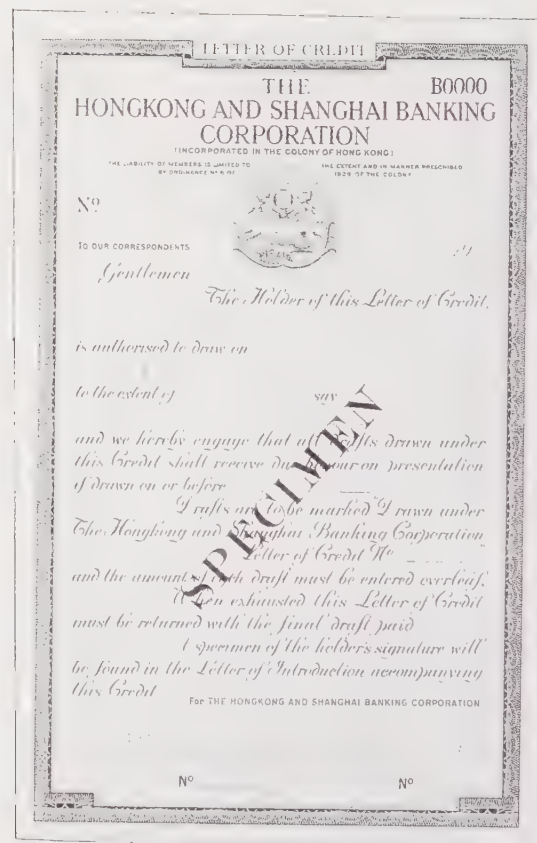 LETTER OF CREDIT
THE B0000
HONGKONG AND SHANGHAI BANKING
CORPORATION
(INCORPORATED IN THE COLONY OF HONG KONG)
THE LIABILITY OF MEMBERS IS LIMITED TO THE EXTENT AND IN MANNER PRESCRIBED
BY ORDINANCE Nº 6 OF 1929 OF THE COLONY
Nº
TO OUR CORRESPONDENTS 19
Gentlemen
The Holder of this Letter of Credit,
is authorised to draw on
to the extent of say
and we hereby engage that all drafts drawn under
this Credit shall receive due honour on presentation
if drawn on or before
Drafts are to be marked "Drawn under
The Hongkong and Shanghai Banking Corporation
Letter of Credit Nº "
and the amount of each draft must be entered overleaf.
When exhausted this Letter of Credit
must be returned with the final draft paid
A specimen of the holder's signature will
be found in the Letter of Introduction accompanying
this Credit
For THE HONGKONG AND SHANGHAI BANKING CORPORATION
SPECIMEN
Nº Nº